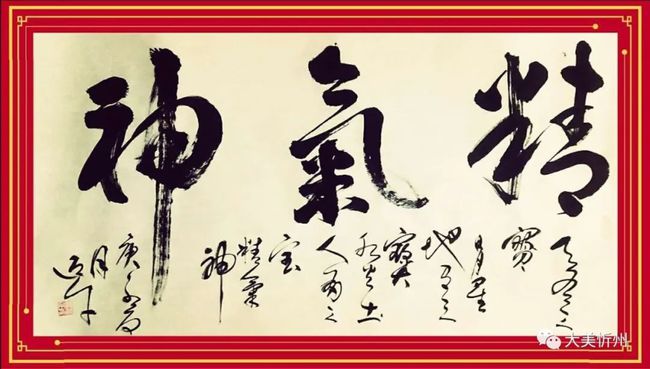 精氣神
天有三
寶
日月星
地有三
寶
水火土
人有三
宝
精氣
神
庚子
月
大美忻州